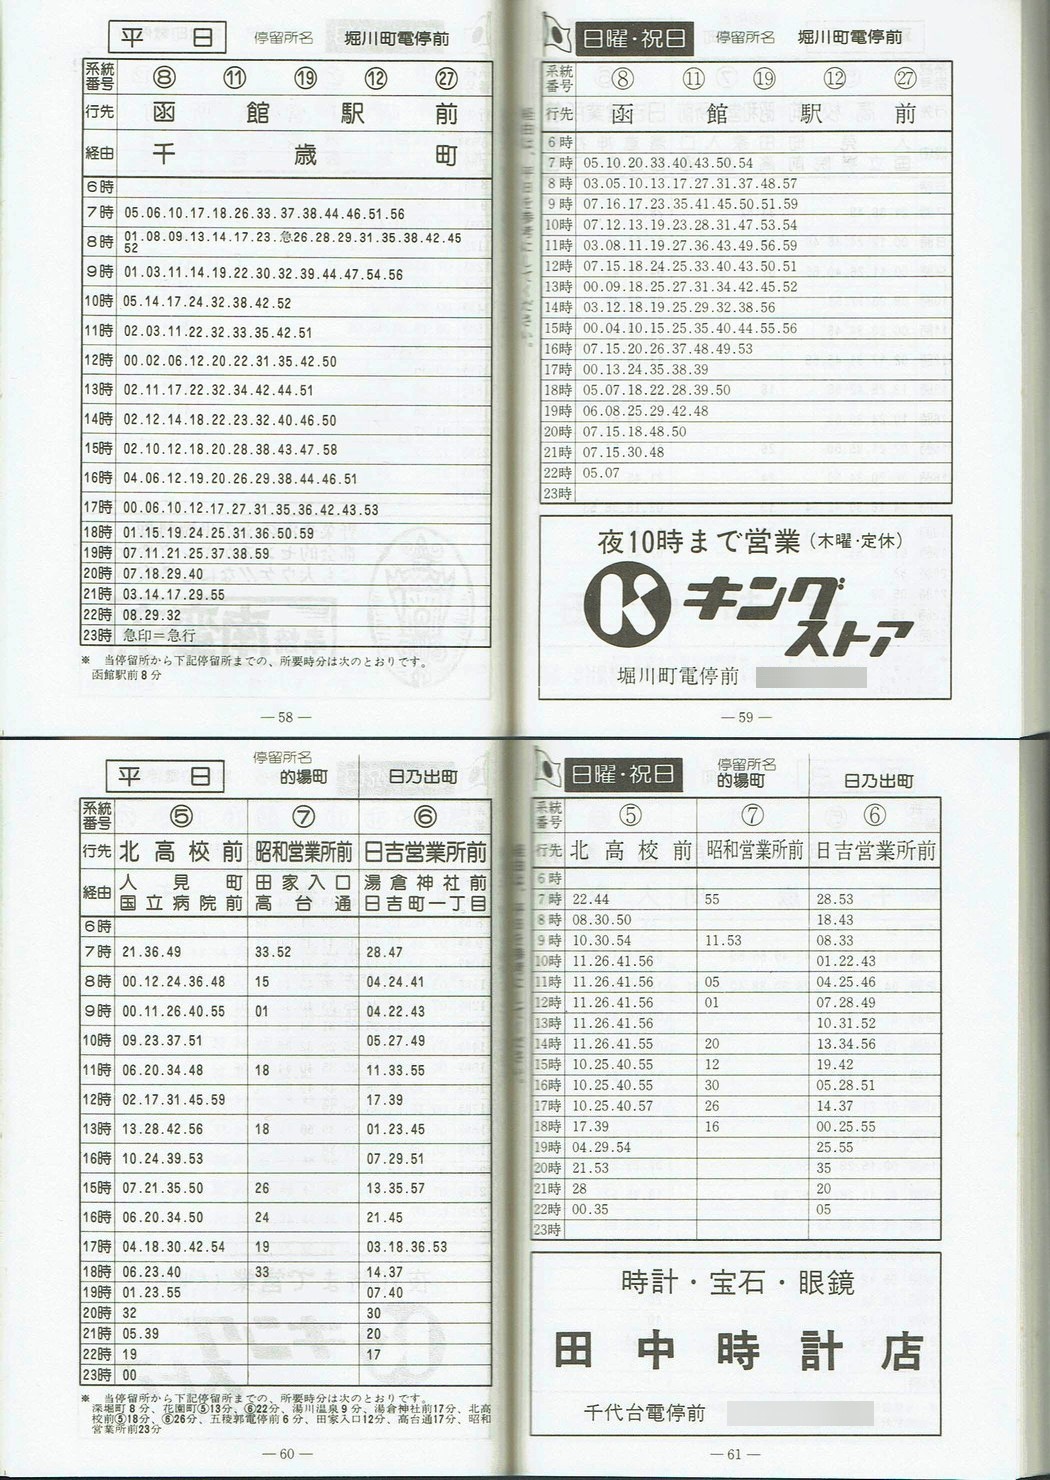 平日 停留所名 堀川町電停前
系統番号 ⑧ ⑪ ⑲ ⑫ ㉗
行先 函館駅前
経由 千歳町
6時
7時 05.06.10.17.18.26.33.37.38.44.46.51.56
8時 01.08.09.13.14.17.23.急26.28.29.31.35.38.42.45
52
9時 01.03.11.14.19.22.30.32.39.44.47.54.56
10時 05.14.17.24.32.38.42.52
11時 02.03.11.22.32.33.35.42.51
12時 00.02.06.12.20.22.31.35.42.50
13時 02.11.17.22.32.34.42.44.51
14時 02.12.14.18.22.23.32.40.46.50
15時 02.10.12.18.20.28.38.43.47.58
16時 04.06.12.19.20.26.29.38.44.46.51
17時 00.06.10.12.17.27.31.35.36.42.43.53
18時 01.15.19.24.25.31.36.50.59
19時 07.11.21.25.37.38.59
20時 07.18.29.40
21時 03.14.17.29.55
22時 08.29.32
23時 急印=急行
※ 当停留所から下記停留所までの、所要時分は次のとおりです。
函館駅前8分
—58—
日曜・祝日 停留所名 堀川町電停前
系統番号 ⑧ ⑪ ⑲ ⑫ ㉗
行先 函館駅前
6時
7時 05.10.20.33.40.43.50.54
8時 03.05.10.13.17.27.31.37.48.57
9時 07.16.17.23.35.41.45.50.51.59
10時 07.12.13.19.23.28.31.47.53.54
11時 03.08.11.19.27.36.43.49.56.59
12時 07.15.18.24.25.33.40.43.50.51
13時 00.09.18.25.27.31.34.42.45.52
14時 03.12.18.19.25.29.32.38.56
15時 00.04.10.15.25.35.40.44.55.56
16時 07.15.20.26.37.48.49.53
17時 00.13.24.35.38.39
18時 05.07.18.22.28.39.50
19時 06.08.25.29.42.48
20時 07.15.18.48.50
21時 07.15.30.48
22時 05.07
23時
経由は、平日を参考にしてください。
夜10時まで営業(木曜・定休)
K キング
ストア
堀川町電停前
—59—
平日 停留所名 的場町 日乃出町
系統番号 ⑤ ⑦ ⑥
行先 北高校前 昭和営業所前 日吉営業所前
経由 人見町 田家入口 湯倉神社前
国立病院前 高台通 日吉町一丁目
6時
7時 21.36.49 33.52 28.47
8時 00.12.24.36.48 15 04.24.41
9時 00.11.26.40.55 01 04.22.43
10時 09.23.37.51 05.27.49
11時 06.20.34.48 18 11.33.55
12時 02.17.31.45.59 17.39
13時 13.28.42.56 18 01.23.45
16時 10.24.39.53 07.29.51
15時 07.21.35.50 26 13.35.57
16時 06.20.34.50 24 21.45
17時 04.18.30.42.54 19 03.18.36.53
18時 06.23.40 33 14.37
19時 01.23.55 07.40
20時 32 30
21時 05.39 20
22時 19 17
23時 00
※ 当停留所から下記停留所までの、所要時分は次のとおりです。
深堀町8分、花園町⑤13分、⑥22分、湯川温泉9分、湯倉神社前17分、北高
校前⑤18分、⑥26分、五稜郭電停前6分、田家入口12分、高台通17分、昭和
営業所前23分
—60—
日曜・祝日 停留所名 的場町 日乃出町
系統番号 ⑤ ⑦ ⑥
行先 北高校前 昭和営業所前 日吉営業所前
6時
7時 22.44 55 28.53
8時 08.30.50 18.43
9時 10.30.54 11.53 08.33
10時 11.26.41.56 01.22.43
11時 11.26.41.56 05 04.25.46
12時 11.26.41.56 01 07.28.49
13時 11.26.41.56 10.31.52
14時 11.26.41.55 20 13.34.56
15時 10.25.40.55 12 19.42
16時 10.25.40.55 30 05.28.51
17時 10.25.40.57 26 14.37
18時 17.39 16 00.25.55
19時 04.29.54 25.55
20時 21.53 35
21時 28 20
22時 00.35 05
23時
時計・宝石・眼鏡
田中時計店
千代台電停前
—61—